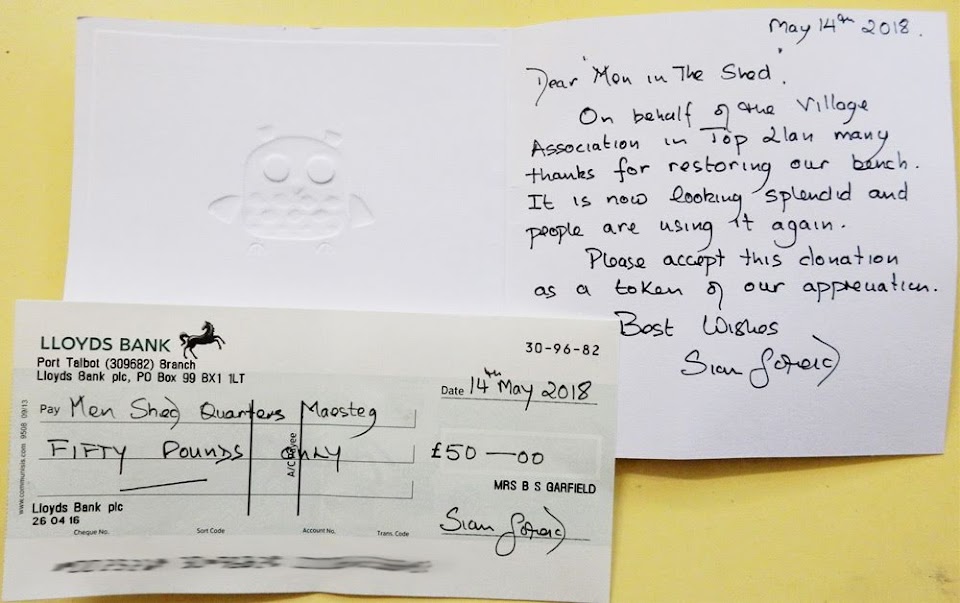 May 14th 2018.
Dear 'Men in The Shed'.
On behalf of the Village
Association in Top Llan many
thanks for restoring our bench.
It is now looking splendid and
people are using it again.
Please accept this donation
as a token of our appreciation.
Best Wishes
Sian Garfield
LLOYDS BANK
Port Talbot (309682) Branch
Lloyds Bank plc, PO Box 99 BX1 1LT
30-96-82
Date 14th May 2018
Pay Men Shed Quarters Maesteg
FIFTY POUNDS ONLY
A/C Payee
£50-00
MRS B S GARFIELD
Lloyds Bank plc
26 04 16
Sian Garfield
Cheque No. Sort Code Account No. Trans. Code
www.communisis.com 9508 09/13